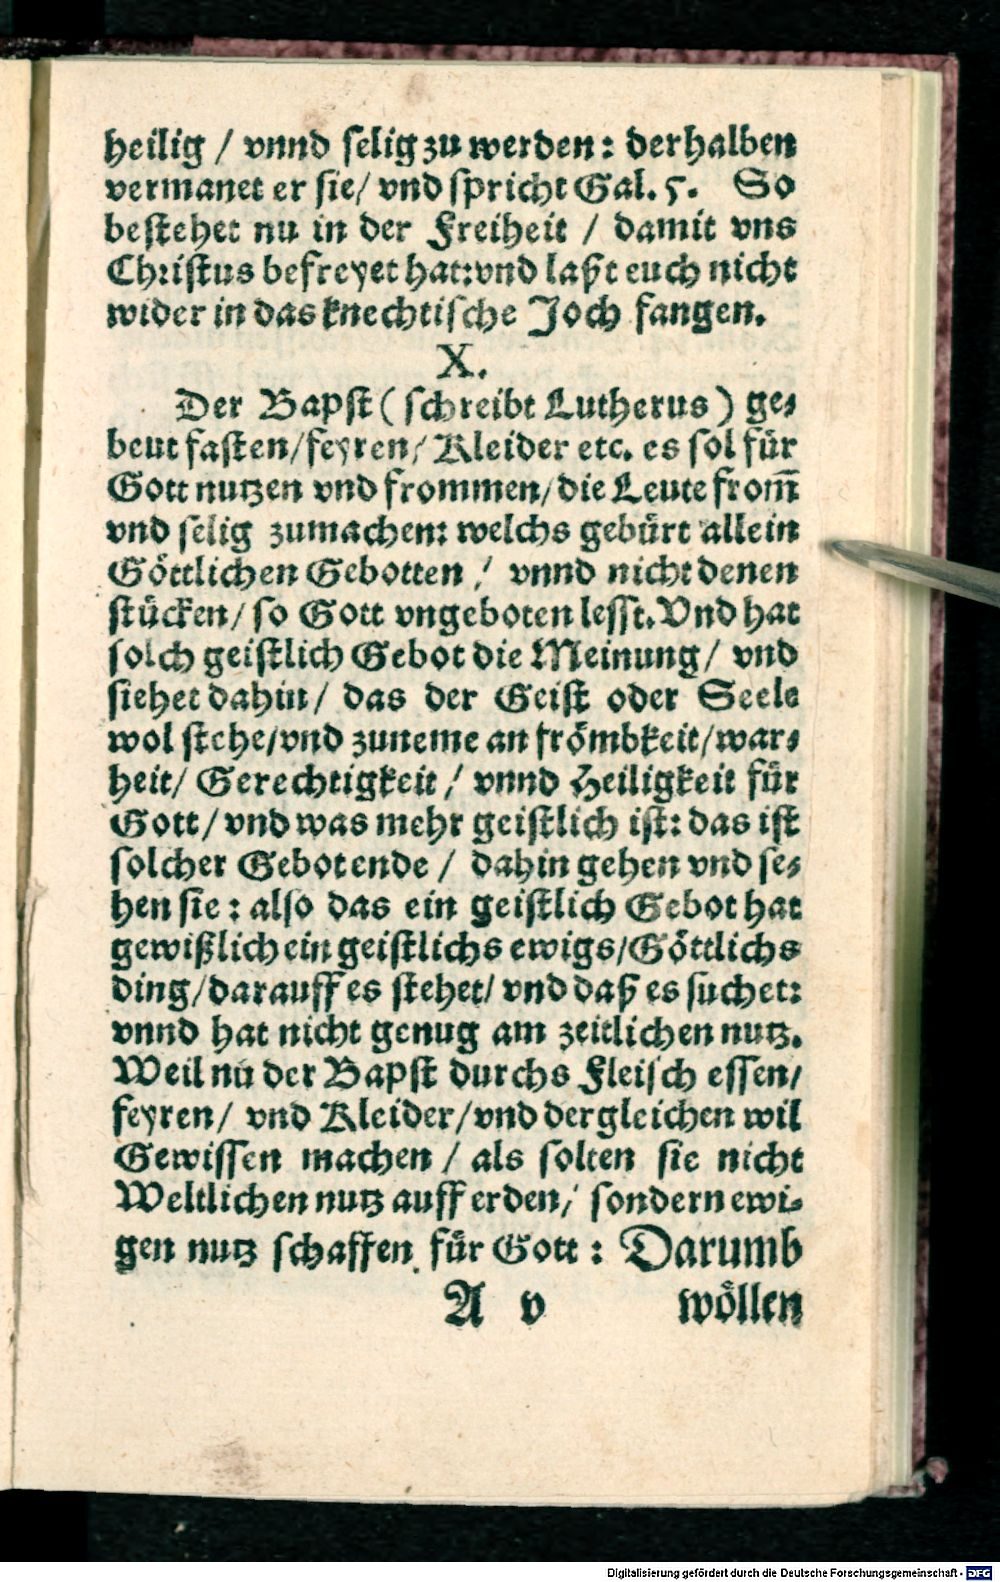 heilig / vnnd selig zu werden: derhalben
vermanet er sie/ vnd spricht Gal. 5. So
bestehet nu in der Freiheit / damit vns
Christus befreyet hat: vnd laßt euch nicht
wider in das knechtische Joch fangen.
X.
Der Bapst (schreibt Lutherus) ge⸗
beut fasten/feyren/ Kleider etc. es sol für
Gott nutzen vnd frommen/die Leute from̄
vnd selig zumachen: welchs gebürt allein
Göttlichen Gebotten / vnnd nicht denen
stücken/ so Gott vngeboten lesst. Vnd hat
solch geistlich Gebot die Meinung/ vnd
siehet dahin/ das der Geist oder Seele
wol stehe/vnd zuneme an frömbkeit/war⸗
heit/ Gerechtigkeit / vnnd Heiligkeit für
Gott/ vnd was mehr geistlich ist: das ist
solcher Gebot ende / dahin gehen vnd se⸗
hen sie: also das ein geistlich Gebot hat
gewißlich ein geistlichs ewigs/Göttlichs
ding/darauff es stehet/ vnd daß es suchet:
vnnd hat nicht genug am zeitlichen nutz.
Weil nu der Bapst durchs Fleisch essen/
feyren/ vnd Kleider/vnd dergleichen wil
Gewissen machen / als solten sie nicht
Weltlichen nutz auff erden/ sondern ewi⸗
gen nutz schaffen für Gott: Darumb
A v wöllen
Digitalisierung gefördert durch die Deutsche Forschungsgemeinschaft - DFG